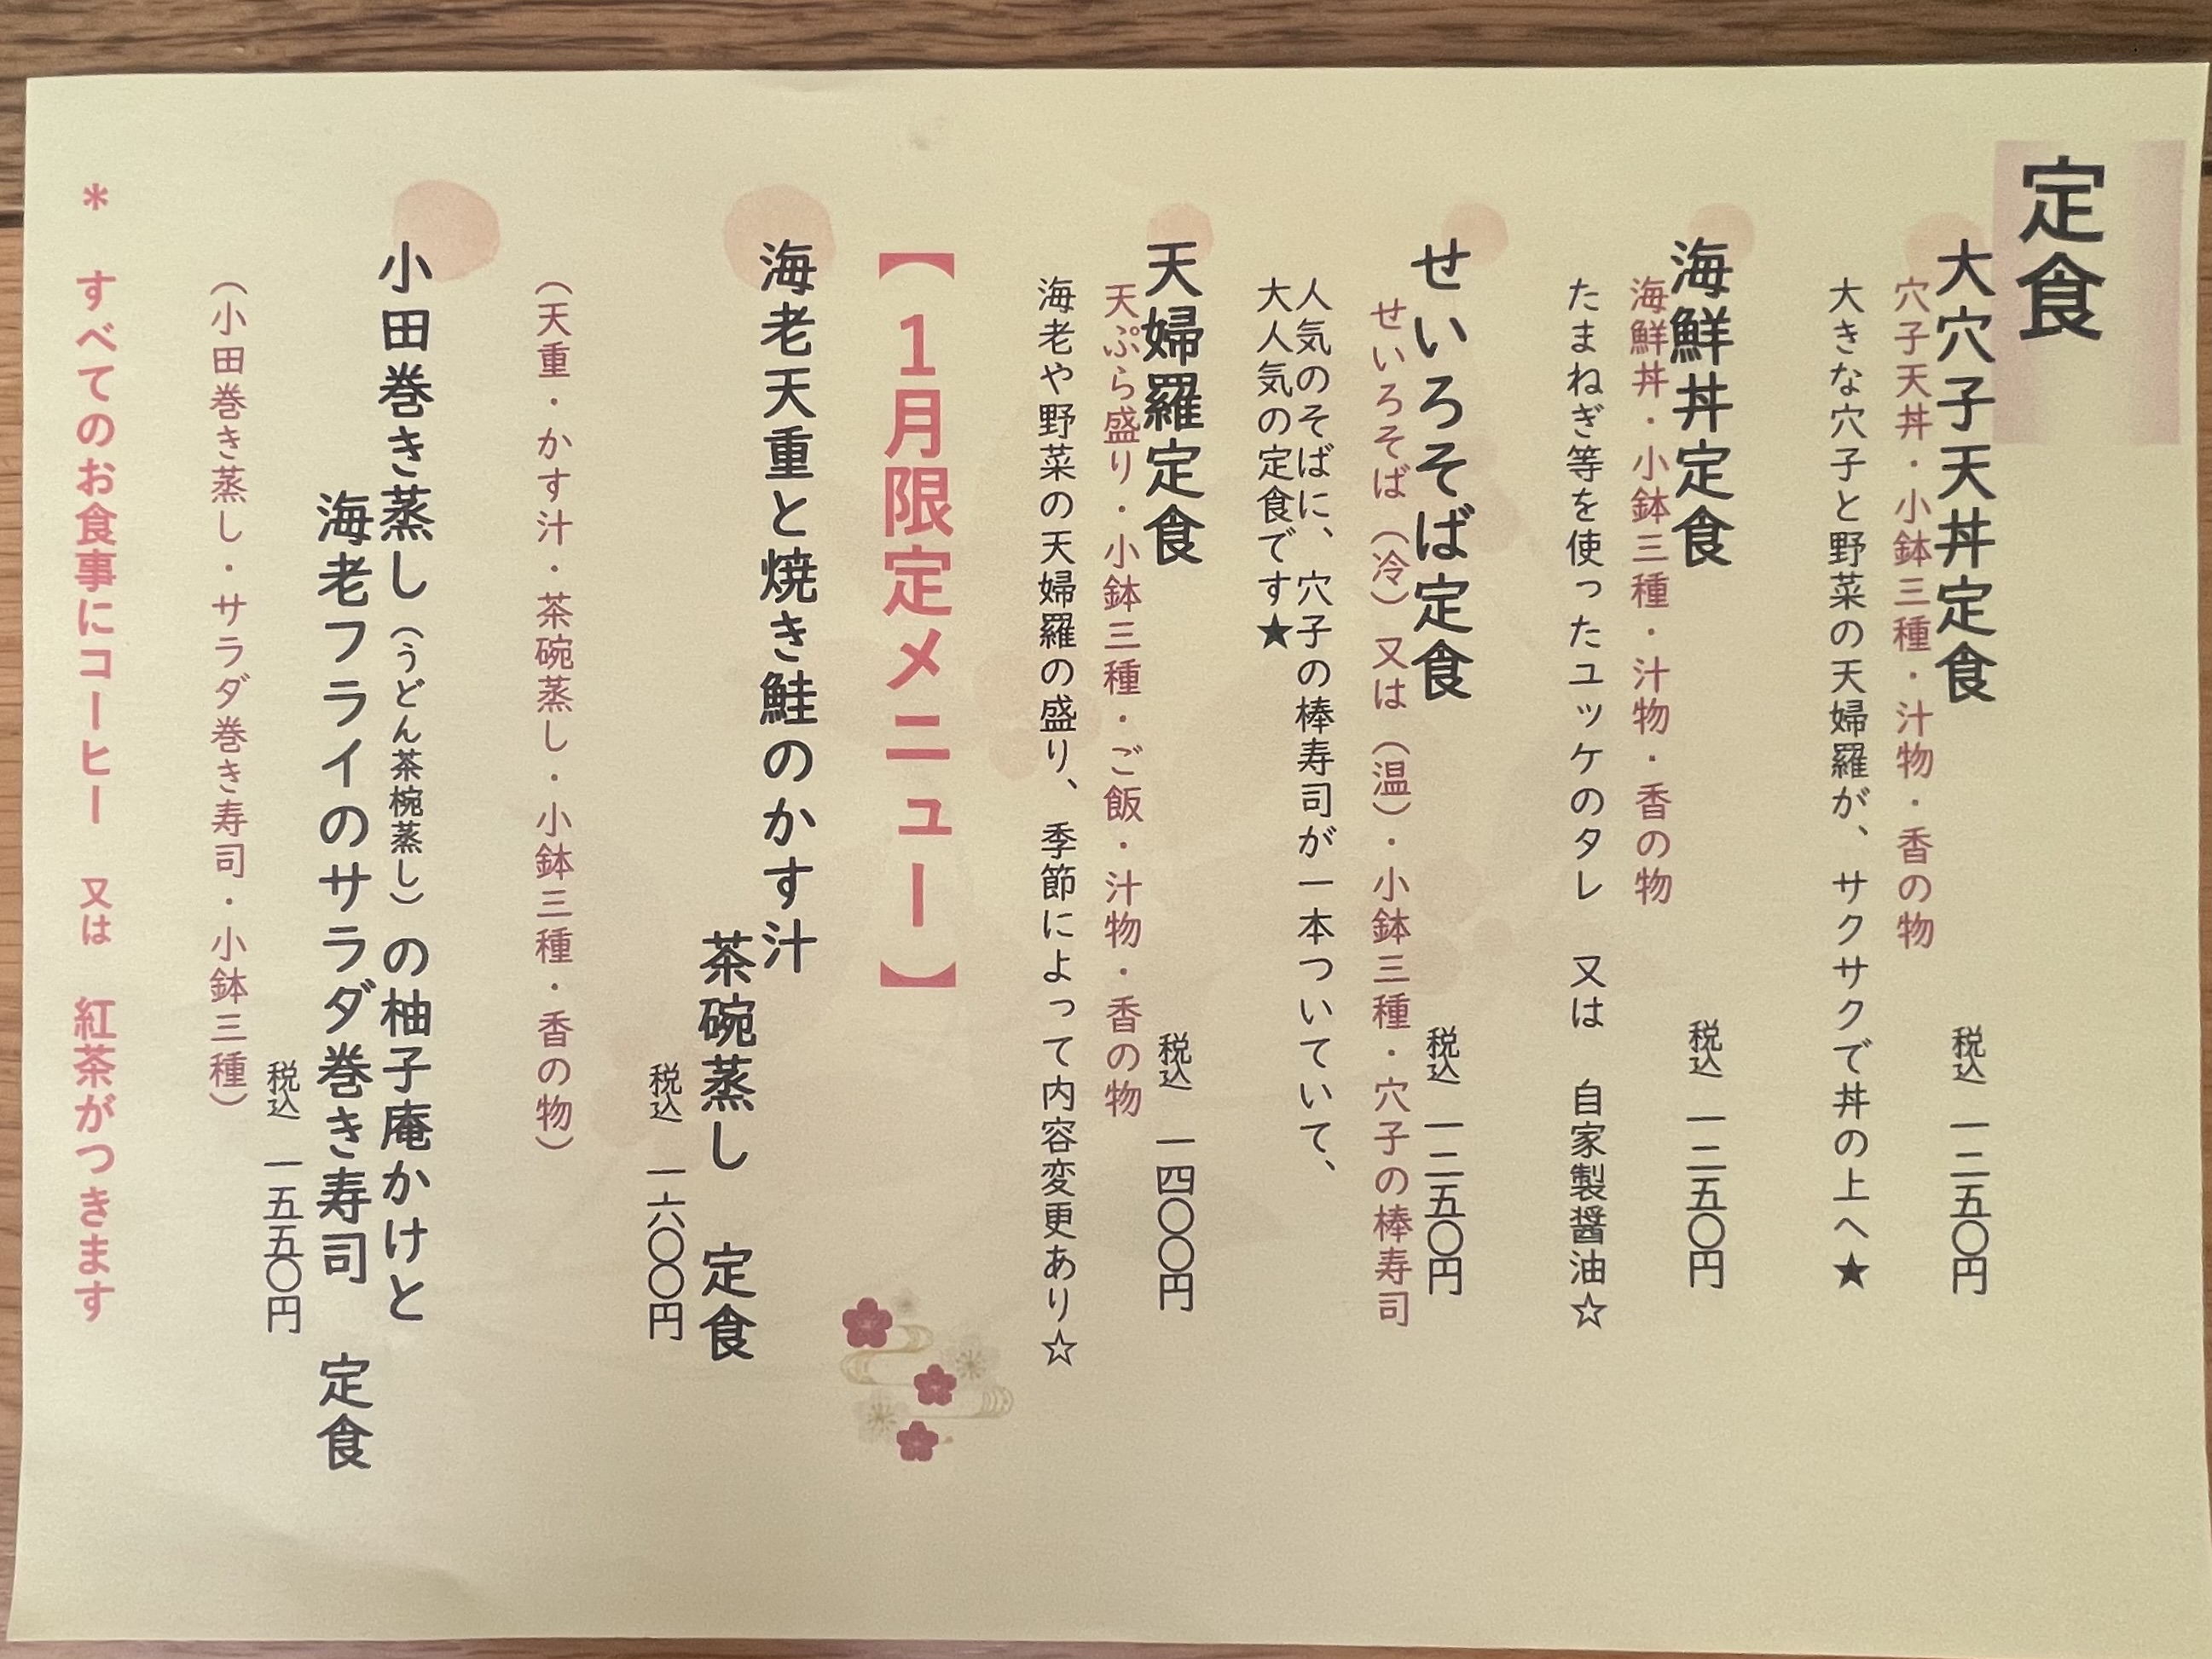 定食
大穴子天丼定食　税込　一二五〇円
穴子天丼・小鉢三種・汁物・香の物
大きな穴子と野菜の天婦羅が、サクサクで丼の上へ★
海鮮丼定食　税込　一二五〇円
海鮮丼・小鉢三種・汁物・香の物
たまねぎ等を使ったユッケのタレ　又は　自家製醤油☆
せいろそば定食　税込　一二五〇円
せいろそば（冷）又は（温）・小鉢三種・穴子の棒寿司
人気のそばに、穴子の棒寿司が一本ついていて、
大人気の定食です★
天婦羅定食　税込　一四〇〇円
天ぷら盛り・小鉢三種・ご飯・汁物・香の物
海老や野菜の天婦羅の盛り、季節によって内容変更あり☆
【１月限定メニュー】
海老天重と焼き鮭のかす汁
茶碗蒸し　定食
税込　一六〇〇円
（天重・かす汁・茶碗蒸し・小鉢三種・香の物）
小田巻き蒸し（うどん茶椀蒸し）の柚子庵かけと
海老フライのサラダ巻き寿司　定食
税込　一五五〇円
（小田巻き蒸し・サラダ巻き寿司・小鉢三種）
＊　すべてのお食事にコーヒー　又は　紅茶がつきます